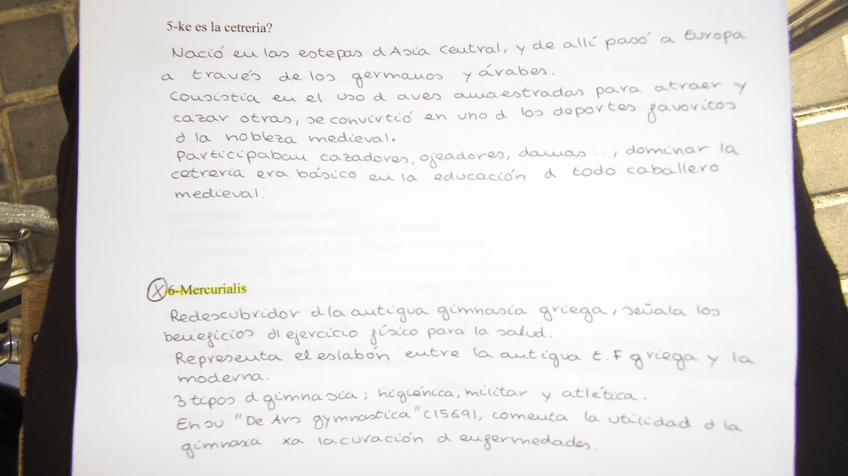 5-ke es la cetreria?
Nació en las estepas d Asia Central, y de allí pasó a Europa
a través de los germanos y árabes.
Consistia en el uso d aves amaestradas para atraer y
cazar otras, se convirtió en uno d los deportes favoritos
d la nobleza medieval.
Participaban cazadores, ojeadores, damas..., dominar la
cetreria era básico en la educación d todo caballero
medieval.
X 6-Mercurialis
Redescubridor d la antigua gimnasia griega, señala los
beneficios dl ejercicio físico para la salud.
Representa el eslabón entre la antigua E.F griega y la
moderna.
3 tipos d gimnasia; higiénica, militar y atlética.
En su "De Ars gymnastica" (1569), comenta la utilidad d la
gimnasia xa la curación d enfermedades.